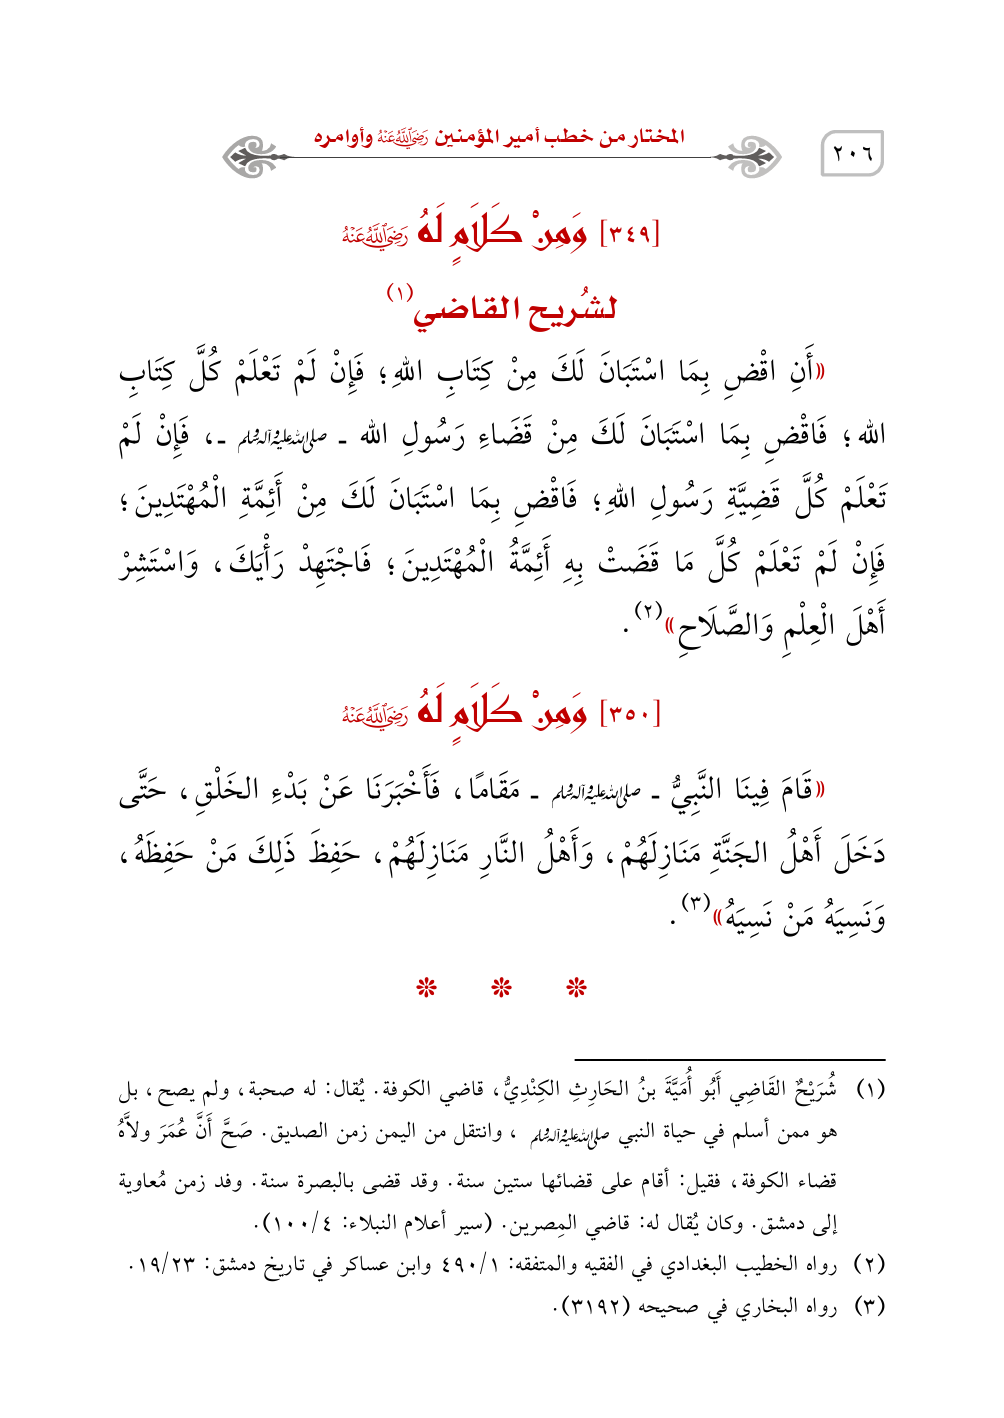 ٢٠٦
المختار من خطب أمير المؤمنين رَضِيَ اللَّهُ عَنْهُ وأوامره
[٣٤٩] وَمِنْ كَلَامٍ لَهُ رَضِيَ اللَّهُ عَنْهُ
لشُريح القاضي(١)
«أَنِ اقْضِ بِمَا اسْتَبَانَ لَكَ مِنْ كِتَابِ اللهِ؛ فَإِنْ لَمْ تَعْلَمْ كُلَّ كِتَابِ
الله؛ فَاقْضِ بِمَا اسْتَبَانَ لَكَ مِنْ قَضَاءِ رَسُولِ الله ـ صلى الله عليه وآله وسلم ـ، فَإِنْ لَمْ
تَعْلَمْ كُلَّ قَضِيَّةِ رَسُولِ اللهِ؛ فَاقْضِ بِمَا اسْتَبَانَ لَكَ مِنْ أَئِمَّةِ الْمُهْتَدِينَ؛
فَإِنْ لَمْ تَعْلَمْ كُلَّ مَا قَضَتْ بِهِ أَئِمَّةُ الْمُهْتَدِينَ؛ فَاجْتَهِدْ رَأْيَكَ، وَاسْتَشِرْ
أَهْلَ الْعِلْمِ وَالصَّلَاحِ»(٢).
[٣٥٠] وَمِنْ كَلَامٍ لَهُ رَضِيَ اللَّهُ عَنْهُ
«قَامَ فِينَا النَّبِيُّ ـ صلى الله عليه وآله وسلم ـ مَقَامًا، فَأَخْبَرَنَا عَنْ بَدْءِ الخَلْقِ، حَتَّى
دَخَلَ أَهْلُ الجَنَّةِ مَنَازِلَهُمْ، وَأَهْلُ النَّارِ مَنَازِلَهُمْ، حَفِظَ ذَلِكَ مَنْ حَفِظَهُ،
وَنَسِيَهُ مَنْ نَسِيَهُ»(٣).
(١) شُرَيْحٌ القَاضِي أَبُو أُمَيَّةَ بنُ الحَارِثِ الكِنْدِيُّ، قاضي الكوفة. يُقال: له صحبة، ولم يصح، بل
هو ممن أسلم في حياة النبي صلى الله عليه وآله وسلم ، وانتقل من اليمن زمن الصديق. صَحَّ أَنَّ عُمَرَ ولاَّهُ
قضاء الكوفة، فقيل: أقام على قضائها ستين سنة. وقد قضى بالبصرة سنة. وفد زمن مُعاوية
إلى دمشق. وكان يُقال له: قاضي المِصرين. (سير أعلام النبلاء: ١٠٠/٤).
(٢) رواه الخطيب البغدادي في الفقيه والمتفقه: ٤٩٠/١ وابن عساكر في تاريخ دمشق: ١٩/٢٣.
(٣) رواه البخاري في صحيحه (٣١٩٢).